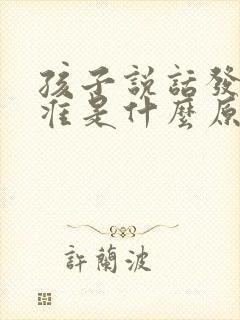 孩子説話發
准是什麼原
許蘭波